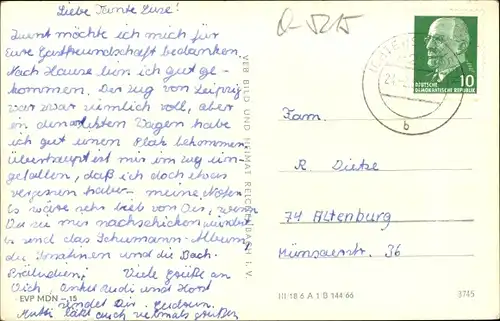 Liebe Tante Luise!
Zuerst möchte ich mich für
Eure Gastfreundschaft bedanken.
Nach Hause bin ich gut ge-
kommen. Der Zug von Leipzig
war zwar ziemlich voll, aber
in den letzten Wagen habe
ich gut einen Platz bekommen.
Überhaupt ist mir im Zug ein-
gefallen, daß ich doch etwas
vergessen habe - meine Noten.
Es wäre sehr lieb von Dir, wenn
Du sie mir nachschicken würdest.
Es sind das Schumann-Album,
die Sonatinen und die Bach-
Präludien! Viele Grüße an
Dich, Onkel Rudi und Horst
sendet Dir
Mutti läßt auch vielmals grüßen
EVP MDN -.15
VEB BILD UND HEIMAT REICHENBACH I. V.
DEUTSCHE
DEMOKRATISCHE REPUBLIK
10
b
Fam.
R. Dietze
74 Altenburg
Münsaerstr. 36
III 18 6 A 1 B 144/66
3745